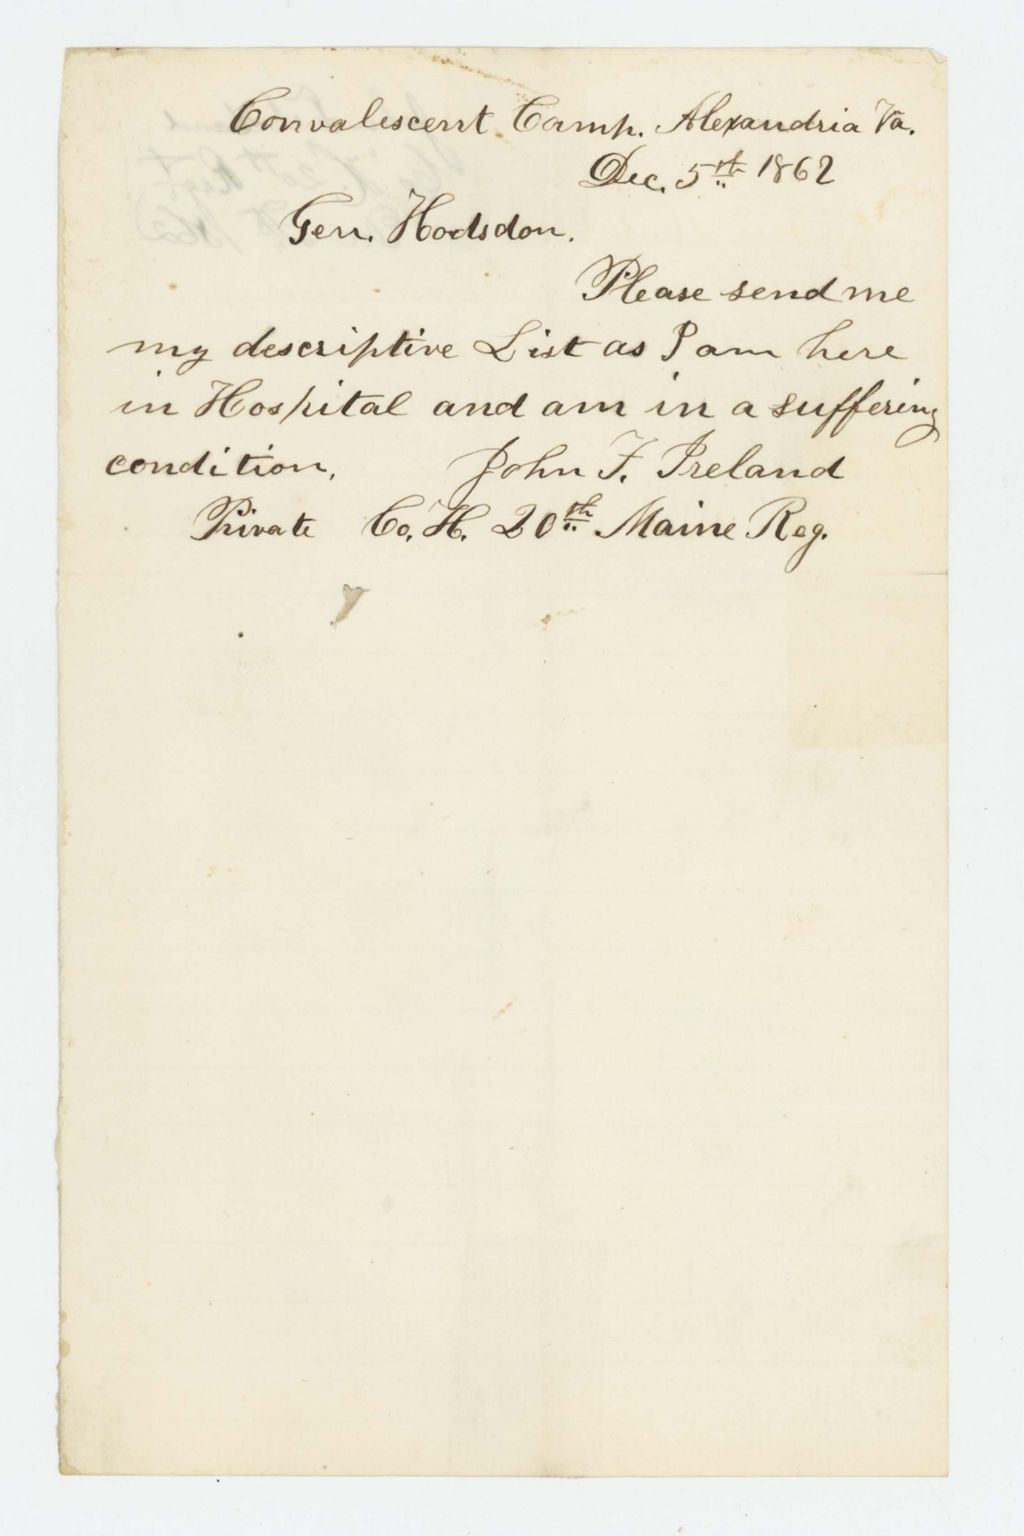 Convalescent Camp. Alexandria Va.
Dec. 5th 1862
Gen. Hodsdon.
Please send me
my descriptive List as I am here
in Hospital and am in a suffering
condition. John F. Ireland
Private Co. H. 20th Maine Reg.